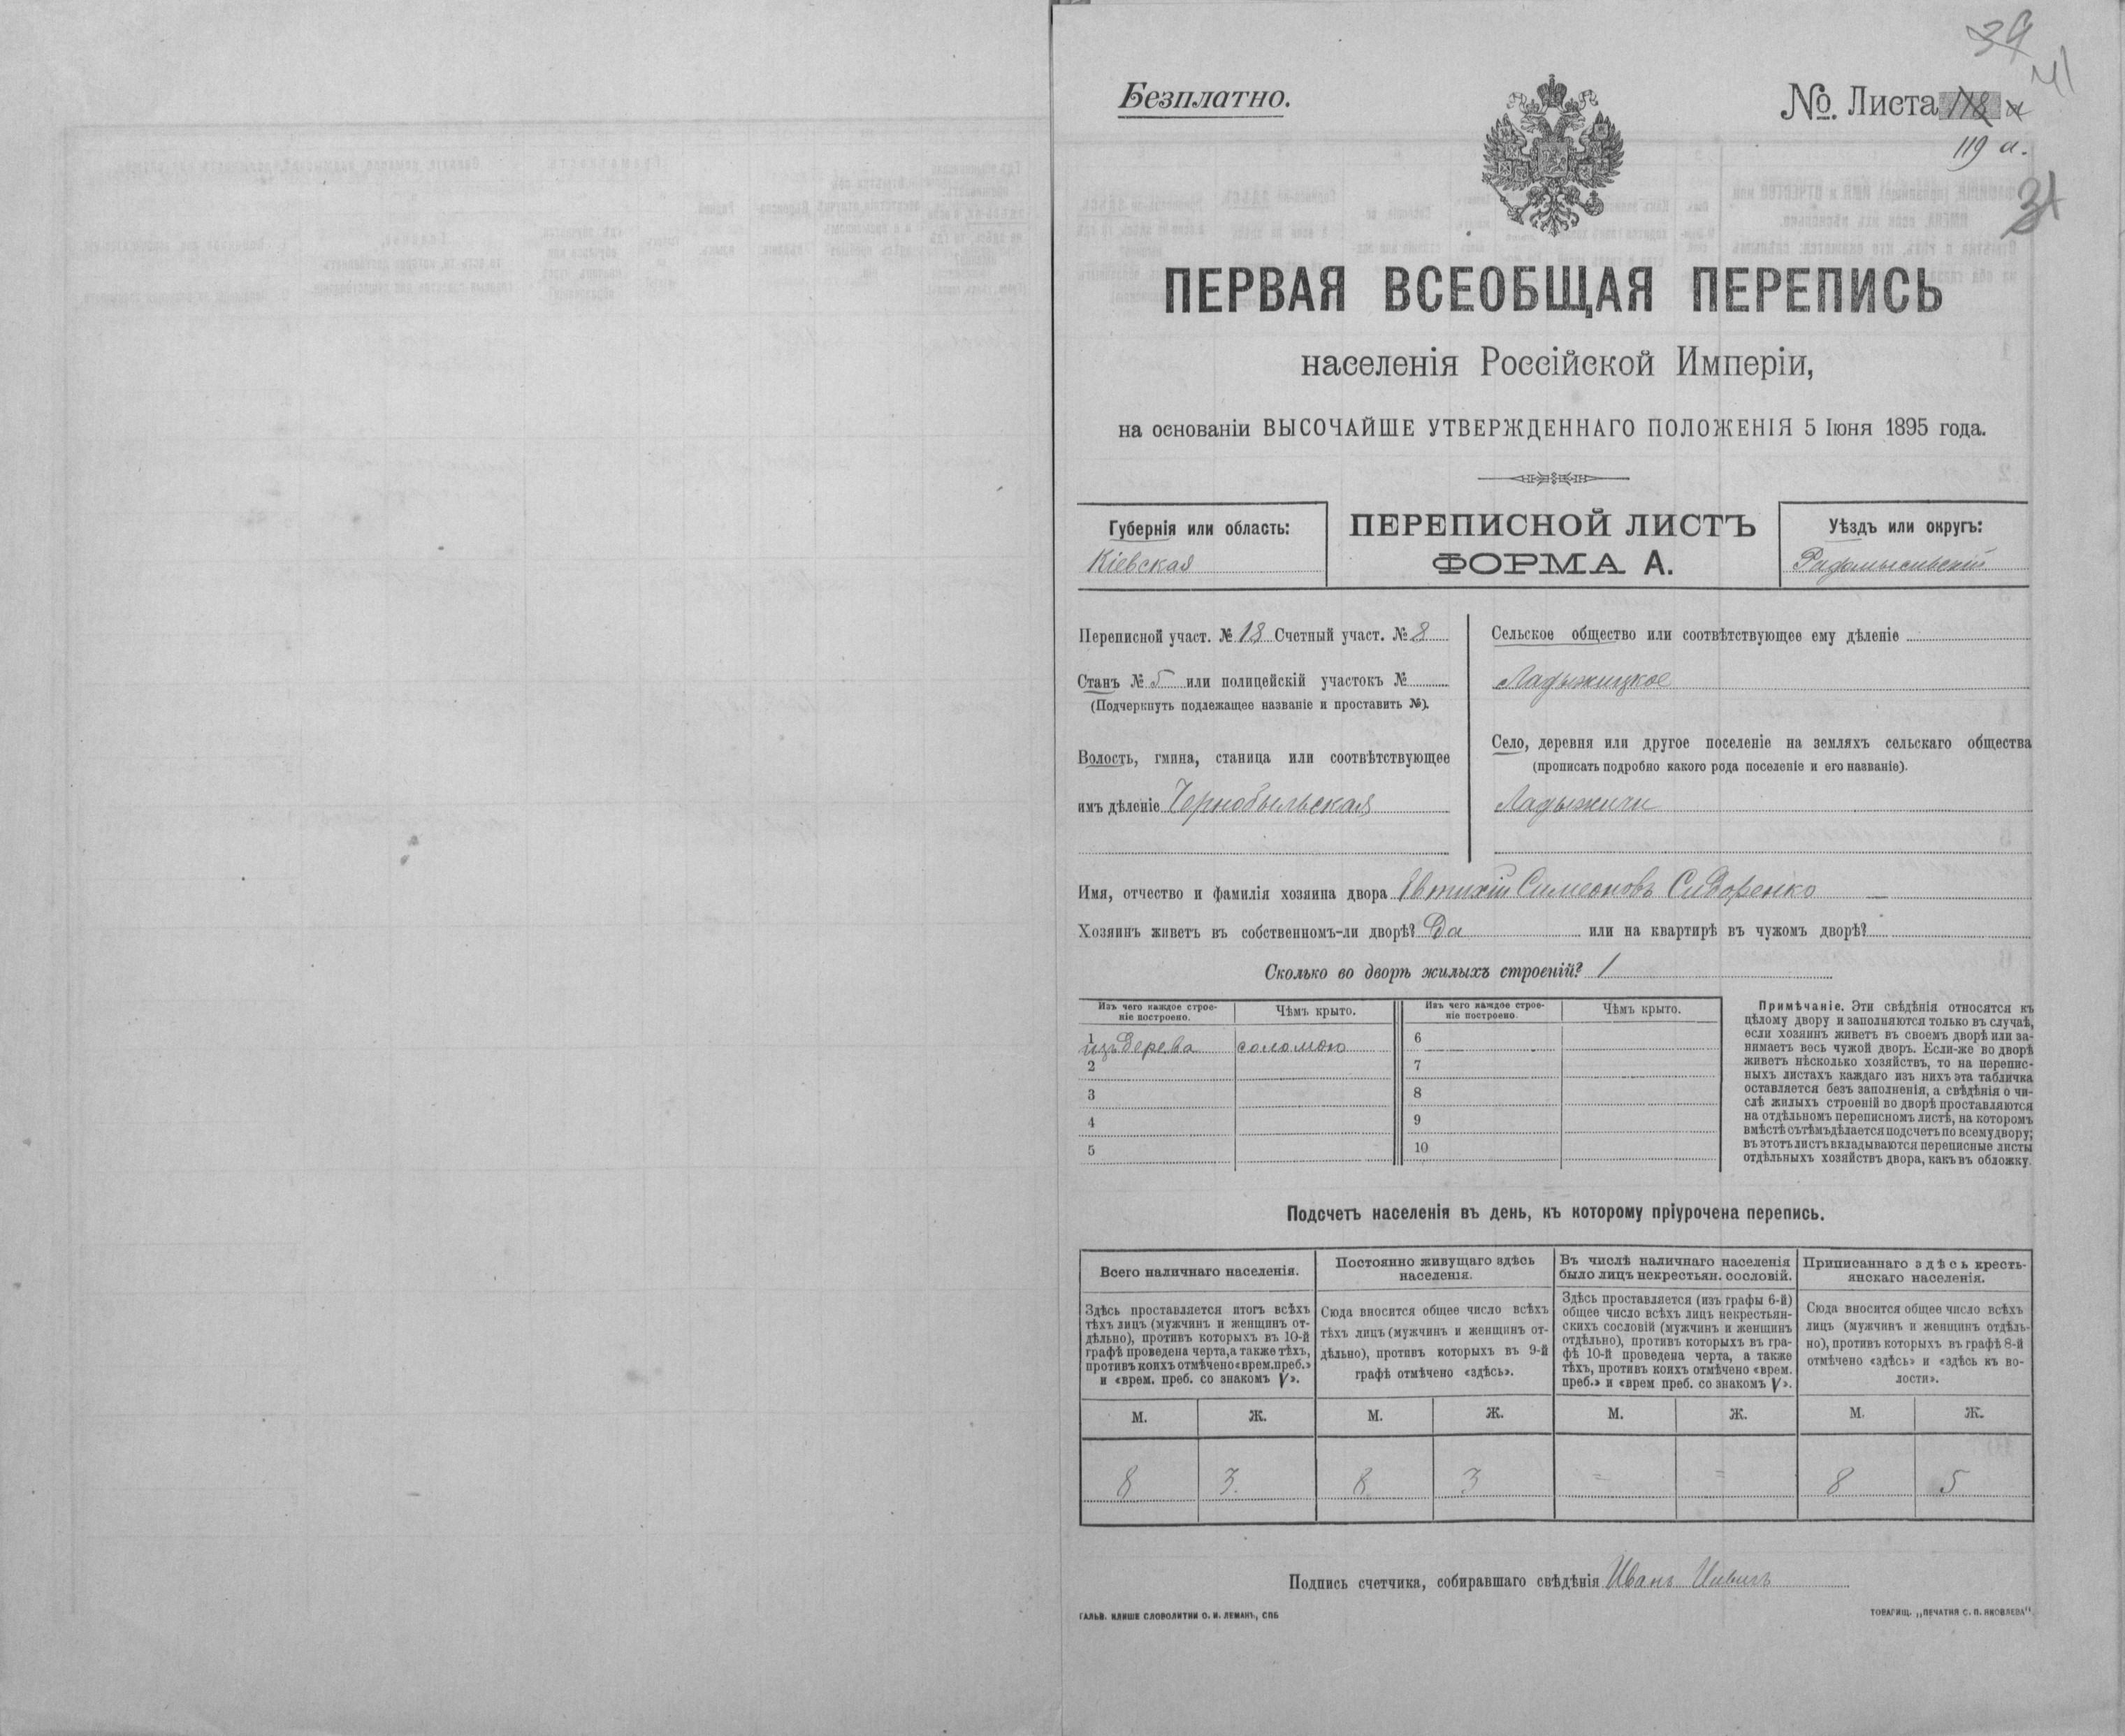 39
41
Безплатно.
№. Листа 118 а
119 а.
31
ПЕРВАЯ ВСЕОБЩАЯ ПЕРЕПИСЬ
населенія Россійской Имперіи,
на основаніи ВЫСОЧАЙШЕ УТВЕРЖДЕННАГО ПОЛОЖЕНІЯ 5 Іюня 1895 года.
Губернія или область:
Кіевская
ПЕРЕПИСНОЙ ЛИСТЪ
ФОРМА А.
Уѣздъ или округъ:
Радомысльскій
Переписной участ. № 18 Счетный участ. № 8
Станъ № 5 или полицейскій участокъ №
(Подчеркнуть подлежащее названіе и проставить №).
Волость, гмина, станица или соотвѣтствующее
имъ дѣленіе Чернобыльская
Сельское общество или соотвѣтствующее ему дѣленіе
Ладыжицкое
Село, деревня или другое поселеніе на земляхъ сельскаго общества
(прописать подробно какого рода поселеніе и его названіе).
Ладыжичи
Имя, отчество и фамилія хозяина двора Евтихій Симеоновъ Сидоренко
Хозяинъ живетъ въ собственномъ-ли дворѣ? Да или на квартирѣ въ чужомъ дворѣ?
Сколько во дворѣ жилыхъ строеній? 1
Изъ чего каждое строе-
ніе построено.
Чѣмъ крыто.
Изъ чего каждое строе-
ніе построено.
Чѣмъ крыто.
1 изъ дерева соломою
2
3
4
5
6
7
8
9
10
Примѣчаніе. Эти свѣдѣнія относятся къ
цѣлому двору и заполняются только въ случаѣ,
если хозяинъ живетъ въ своемъ дворѣ или за-
нимаетъ весь чужой дворъ. Если-же во дворѣ
живетъ нѣсколько хозяйствъ, то на перепис-
ныхъ листахъ каждаго изъ нихъ эта табличка
оставляется безъ заполненія, а свѣдѣнія о чи-
слѣ жилыхъ строеній во дворѣ проставляются
на отдѣльномъ переписномъ листѣ, на которомъ
вмѣстѣ съ тѣмъ дѣлается подсчетъ по всему двору;
въ этотъ листъ вкладываются переписные листы
отдѣльныхъ хозяйствъ двора, какъ въ обложку.
Подсчетъ населенія въ день, къ которому пріурочена перепись.
Всего наличнаго населенія.
Здѣсь проставляется итогъ всѣхъ
тѣхъ лицъ (мужчинъ и женщинъ от-
дѣльно), противъ которыхъ въ 10-й
графѣ проведена черта, а также тѣхъ,
противъ коихъ отмѣчено «врем. преб.»
и «врем. преб. со знакомъ V».
Постоянно живущаго здѣсь
населенія.
Сюда вносится общее число всѣхъ
тѣхъ лицъ (мужчинъ и женщинъ от-
дѣльно), противъ которыхъ въ 9-й
графѣ отмѣчено «здѣсь».
Въ числѣ наличнаго населенія
было лицъ некрестьян. сословій.
Здѣсь проставляется (изъ графы 6-й)
общее число всѣхъ лицъ некрестьян-
скихъ сословій (мужчинъ и женщинъ
отдѣльно), противъ которыхъ въ гра-
фѣ 10-й проведена черта, а также
тѣхъ, противъ коихъ отмѣчено «врем.
преб.» и «врем преб. со знакомъ V».
Приписаннаго здѣсь кресть-
янскаго населенія.
Сюда вносится общее число всѣхъ
лицъ (мужчинъ и женщинъ отдѣль-
но), противъ которыхъ въ графѣ 8-й
отмѣчено «здѣсь» и «здѣсь къ во-
лости».
М. Ж. М. Ж. М. Ж. М. Ж.
8 3. 8 3 = = 8 5
Подпись счетчика, собиравшаго свѣдѣнія Иванъ
ГАЛЬВ. КЛИШЕ СЛОВОЛИТНИ О. И. ЛЕМАНЪ, СПБ
ТОВАРИЩ. „ПЕЧАТНЯ С. П. ЯКОВЛЕВА“.